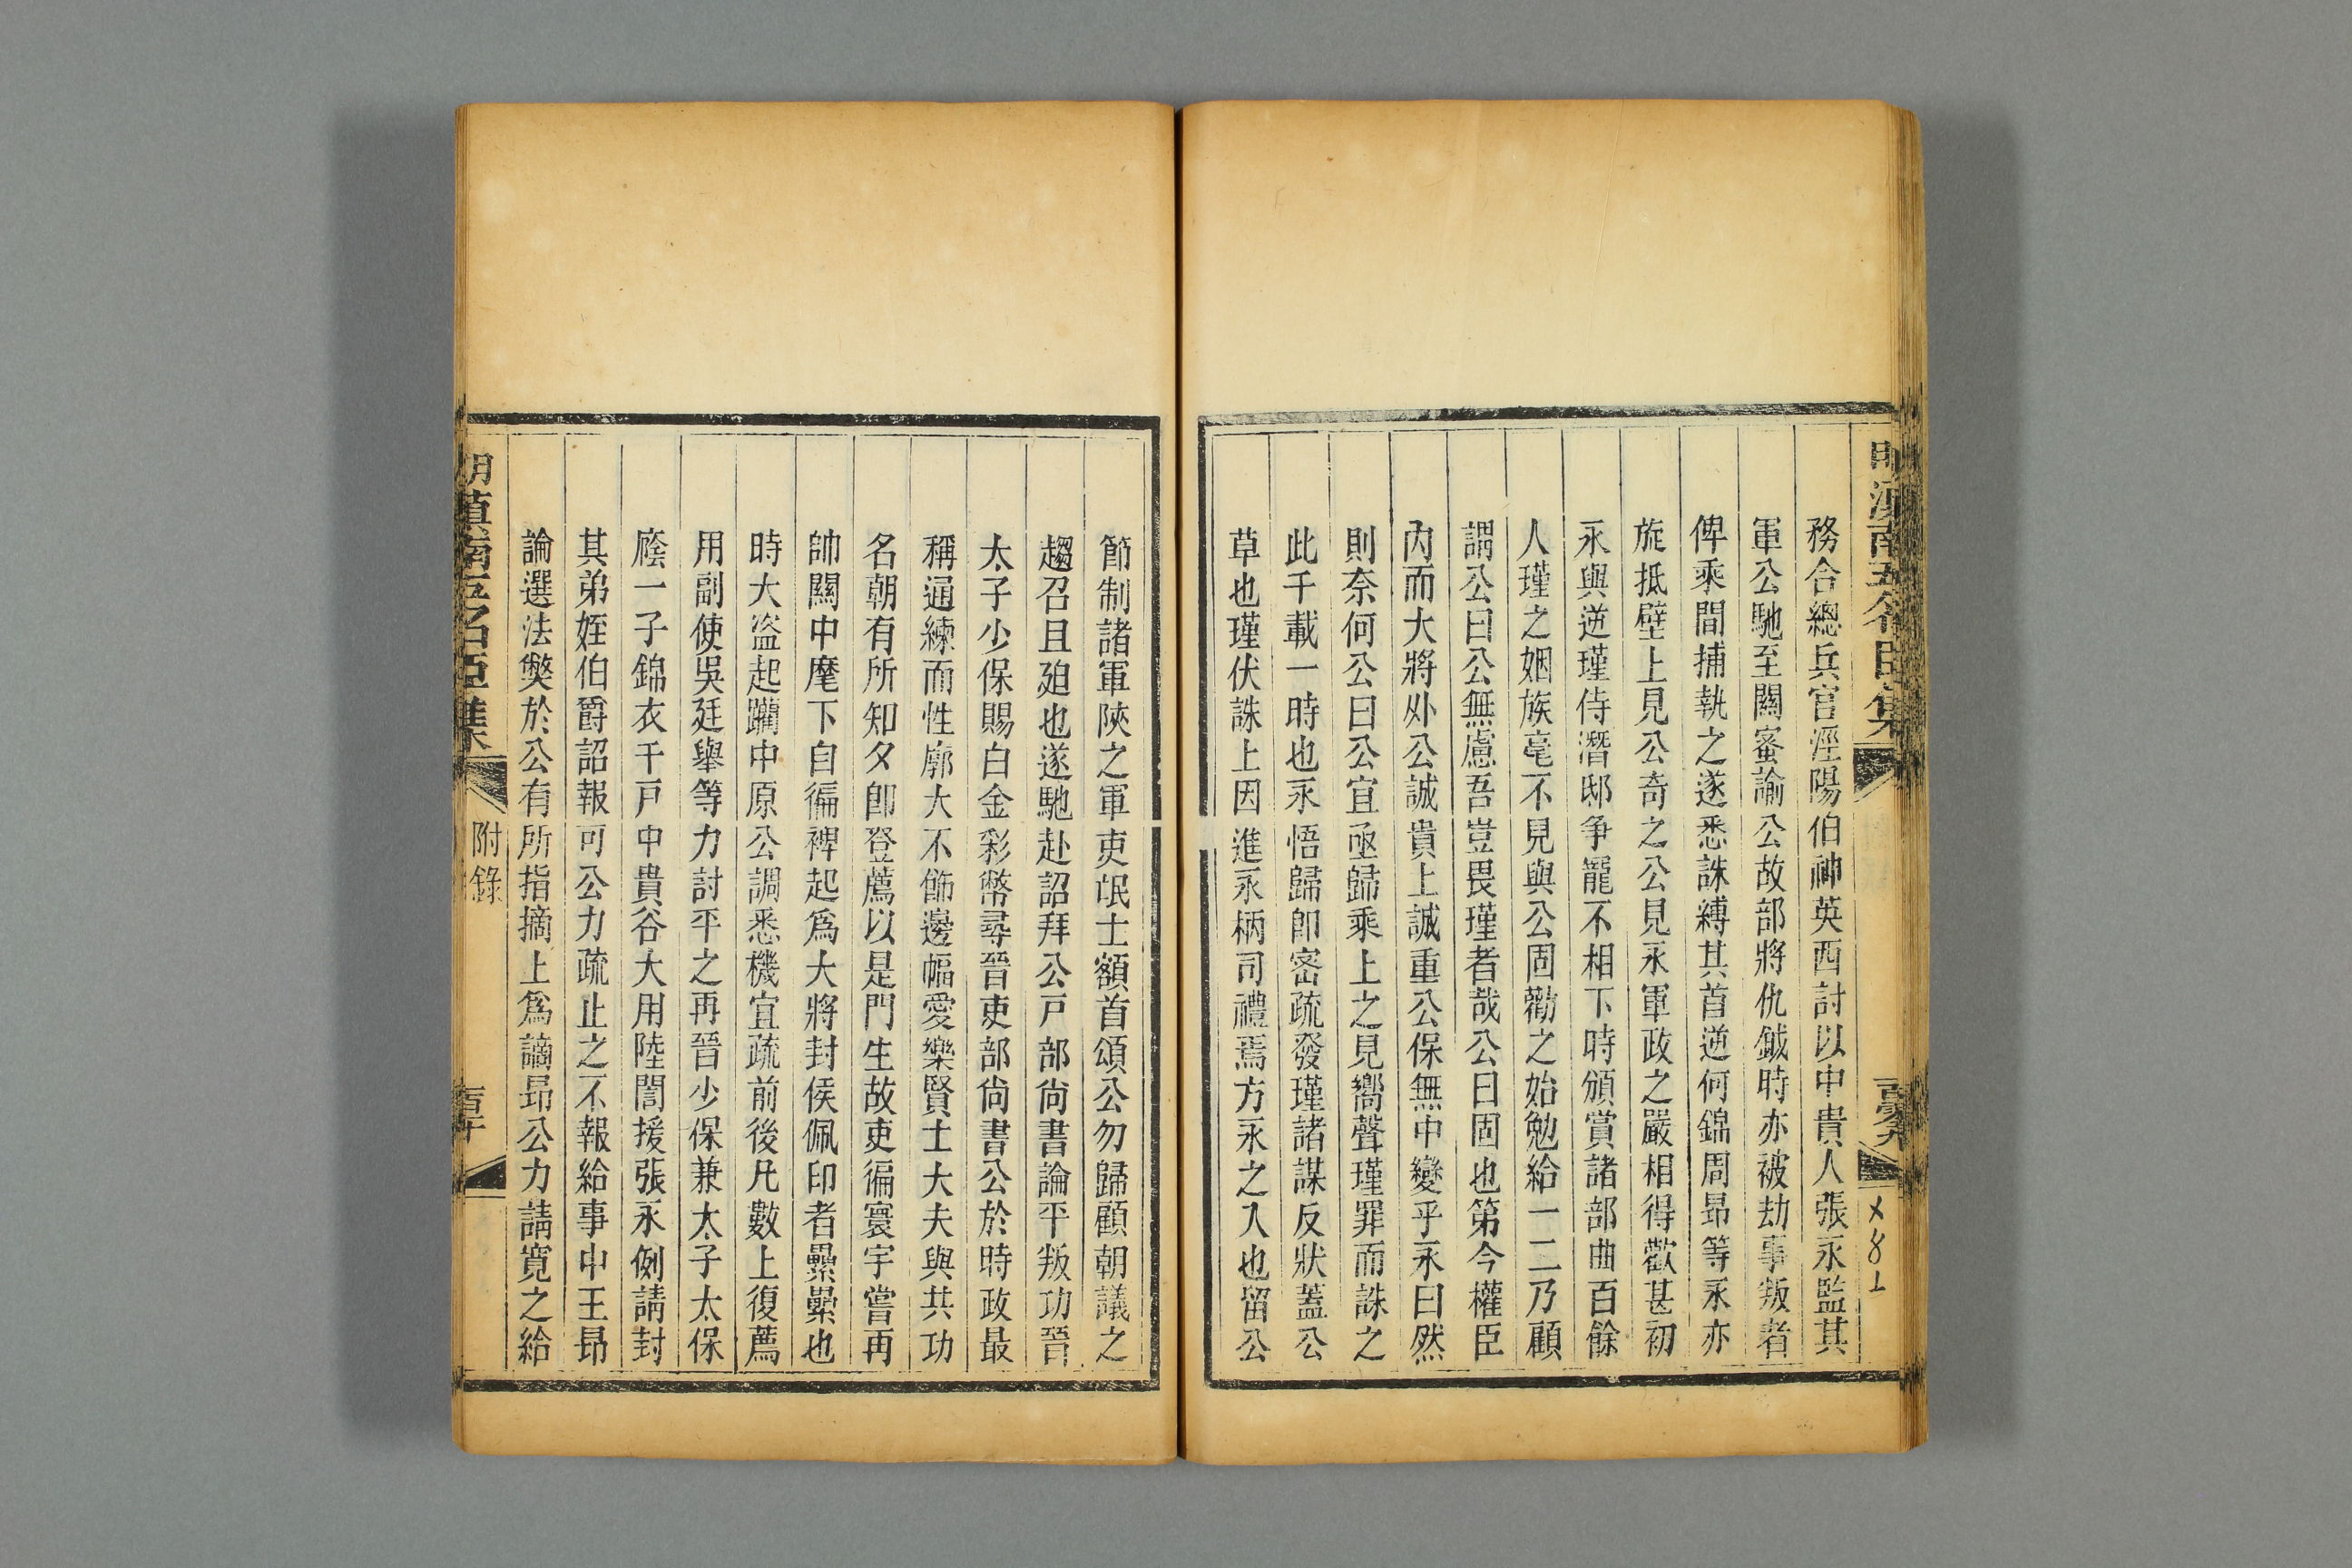 務合總兵官涇陽伯神英西討以中貴人張永監其
軍公馳至關蜜諭公故部將仇鉞時亦被劫事叛者
俾乘間捕執之遂悉誅縛其首逆何錦周昻等永亦
旋抵壁上見公奇之公見永軍政之嚴相得歡甚初
永與逆瑾侍潛邸争寵不相下時頒賞諸部曲百餘
人瑾之姻族毫不見與公固勸之始勉給一二乃顧
謂公曰公無慮吾豈畏瑾者哉公曰固也第今權臣
內而大將外公誠貴上誠重公保無中變乎永曰然
則奈何公曰公宜亟歸乘上之見嚮聲瑾罪而誅之
此千載一時也永悟歸卽密疏發瑾諸謀反狀蓋公
草也瑾伏誅上因進永柄司禮焉方永之入也留公
節制諸軍陜之軍吏氓士額首頌公勿歸顧朝議之
趨召且廹也遂馳赴詔拜公戸部尙書論平叛功晉
太子少保賜白金彩幣尋晉吏部尙書公於時政最
稱通練而性廓大不飾邊幅愛樂賢士大夫與共功
名朝有所知夕卽登薦以是門生故吏徧寰宇嘗再
帥關中麾下自徧裨起爲大將封侯佩印者纍纍也
時大盜起躪中原公調悉機宜疏前後凡數上復薦
用副使吳廷舉等力討平之再晉少保兼太子太保
廕一子錦衣千戸中貴谷大用陸誾援張永例請封
其弟姪伯爵詔報可公力疏止之不報給事中王昻
論選法獘於公有所指摘上爲謫昻公力請寛之給
明滇南五名臣集
附錄